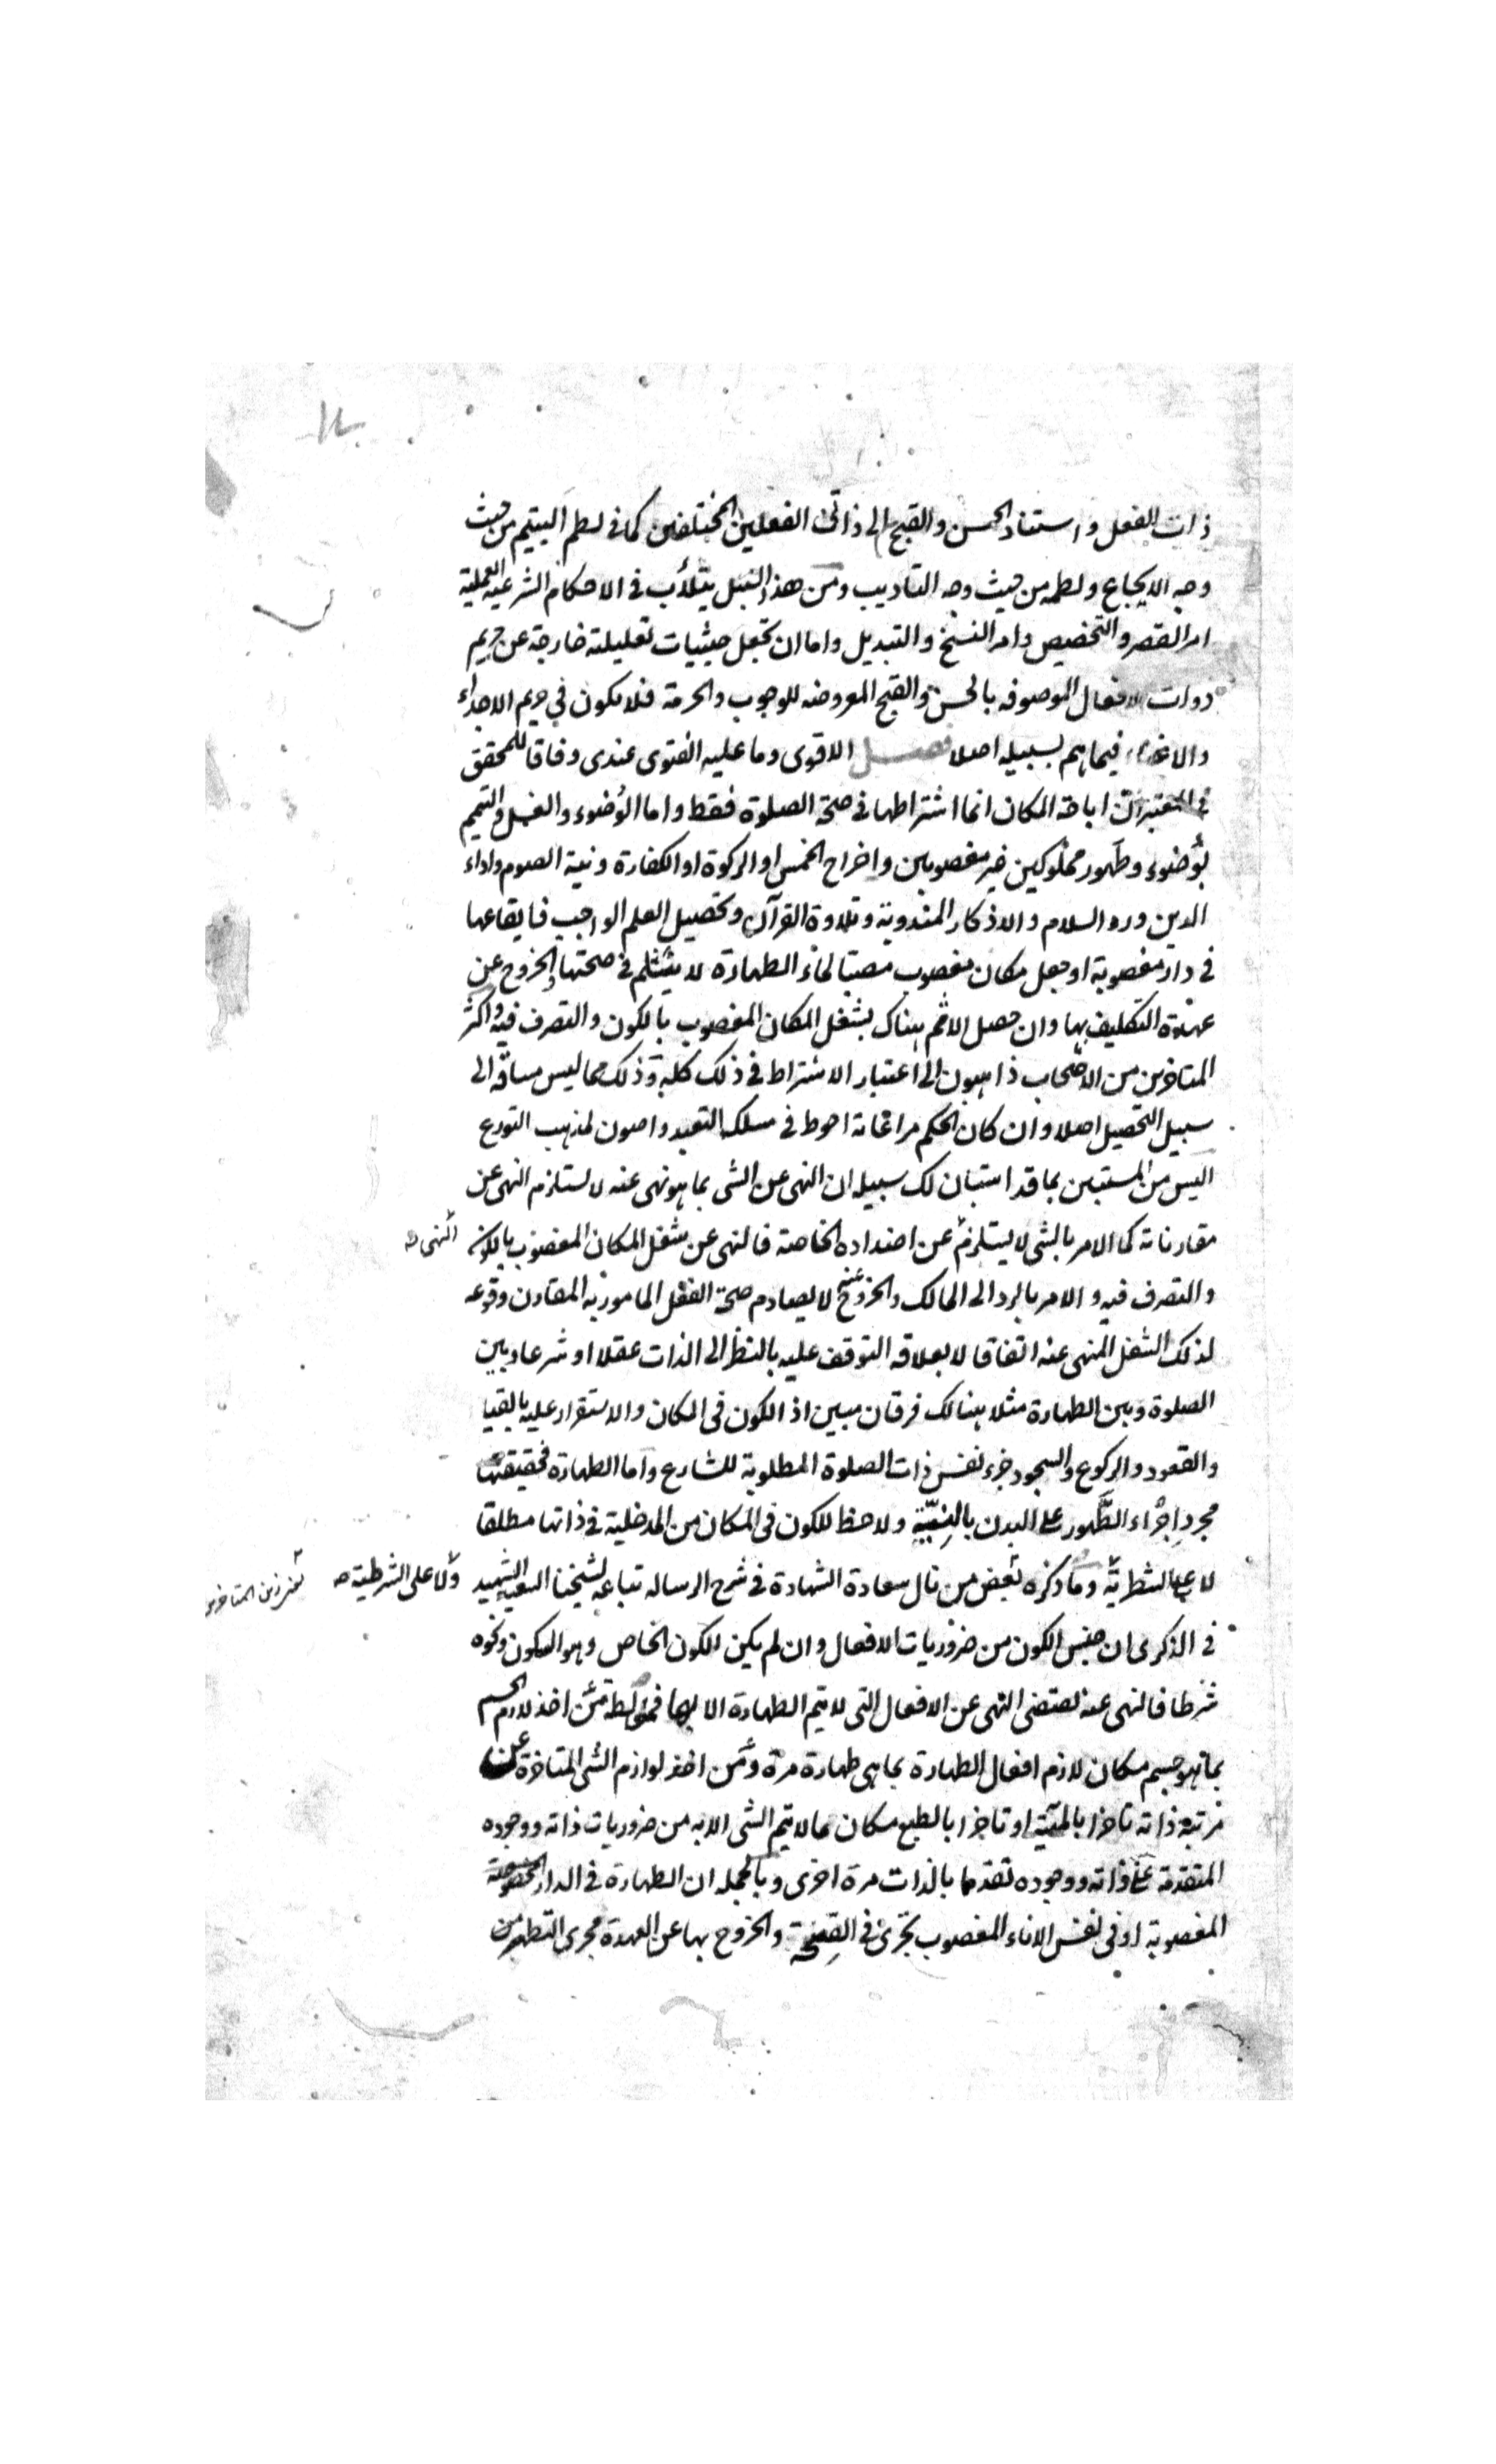 ذات الفعل واستناد الحسن والقبح الى ذاتى الفعلين المختلفين كما فى لطم اليتيم من حيث
وجه الايجاع ولطمه من حيث وجه التاديب ومن هذا السبيل يتلأب فى الاحكام الشرعية العملية
امر القصر والتخصيص وامر النسخ والتبديل واما ان تجعل حيثيات تعليلية خارجة عن حريم
ذوات الافعال الموصوفه بالحسن والقبح المعروضه للوجوب والحرمة فلا يكون فى حريم الاجداء
والاغناء فيما هم بسبيله اصلا فصل الاقوى وما عليه الفتوى عندى وفاقا للمحقق
فى المعتبر ان اباحة المكان انما اشتراطها فى صحة الصلوة فقط واما الوضوء والغسل والتيمم
بوضوء وطهور مملوكين غير مغصوبين واخراج الخمس او الزكوة او الكفارة ونية الصوم واداء
الدين ورد السلام والاذكار المندوبة وتلاوة القرآن وتحصيل العلم الواجب فايقاعها
فى دار مغصوبة او جعل مكان مغصوب مصبا لماء الطهارة لا ينثلم فى صحتها والخروج عن
عهدة التكليف بها وان حصل الاثم هناك بشغل المكان المغصوب بالكون والتصرف فيه واكثر
المتاخرين من الاصحاب ذاهبون الى اعتبار الاشتراط فى ذلك كله وذلك مما ليس مساقه الى
سبيل التحصيل اصلا وان كان الحكم مراعاته احوط فى مسلك التعبد واصون لمذهب التورع
اليس من المستبين بما قد استبان لك سبيله ان النهى عن الشى بما هو نهى عنه لا يستلزم النهى عن
مقارناته كما الامر بالشى لا يستلزم عن اضداده الخاصة فالنهى عن شغل المكان المغصوب بالكون
النهى صح
والتصرف فيه والامر بالرد الى المالك والخروج عنه لا يصادم صحة الفعل المامور به المقارن وقوعه
لذلك الشغل المنهى عنه اتفاقا لا بعلاقه التوقف عليه بالنظر الى الذات عقلا او شرعا وبين
الصلوة وبين الطهارة مثلا هنالك فرقان مبين اذ الكون فى المكان والاستقرار عليه بالقيا
والقعود والركوع والسجود جزء نفس ذات الصلوة المطلوبة للشارع واما الطهارة فحقيقتها
مجرد اجراء الطهور على البدن بالنية ولا حظ للكون فى المكان من المدخلية فى ذاتها مطلقا
لا على الشطرية وما ذكره بعض من نال سعادة الشهادة فى شرح الرساله تباعه لشيخنا السعيد الشهيد
ولا على الشرطية صح
من المتاخرين
فى الذكرى ان جنس الكون من ضروريات الافعال وان لم يكن الكون الخاص وهو السكون ونحوه
شرطا فالنهى عنه يقتضى النهى عن الافعال التى لا يتم الطهارة الا بها فمغالطة من اخذ لازم الجسم
بما هو جسم مكان لازم افعال الطهارة بما هى طهارة مرة ومن اخذ لوازم الشى المتاخرة عن
مرتبه ذاته تاخرا بالمعية او تاخرا بالطبع مكان ما لا يتم الشى الا به من ضروريات ذاته ووجوده
المتقدمة على ذاته ووجوده تقدما بالذات مرة اخرى وبالجمله ان الطهارة فى الدار
المغصوبة او فى نفس الاناء المغصوب تجرى فى الصحة والخروج بها عن العهدة مجرى التطهر من